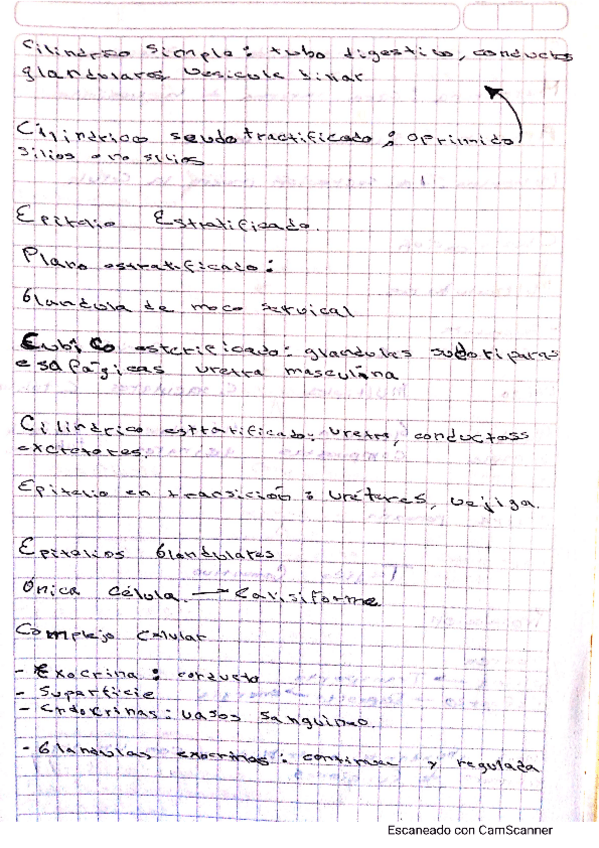 Cilindrico Simple: tubo digestivo, conductos
glandulares vesicula biliar
Cilindrico seudotractificado: oprimido
silios o no silios
Epitelio Estratificado.
Plano estratificado:
Glandula de moco servical
Cubico esterificado: glandulas sudoriparas
esofágicas uretra masculina
Cilindrico estratificado: uretra, conductoss
excretores.
Epitelio en transición: uréteres, vejiga.
Epitelios Glandulares
Única célula. → Calisiforme
Complejo Celular
- Exocrina: conducto
- Superficie
- Endocrinas: vasos sanguineo.
- Glandulas exocrinas: continua y regulada
Escaneado con CamScanner